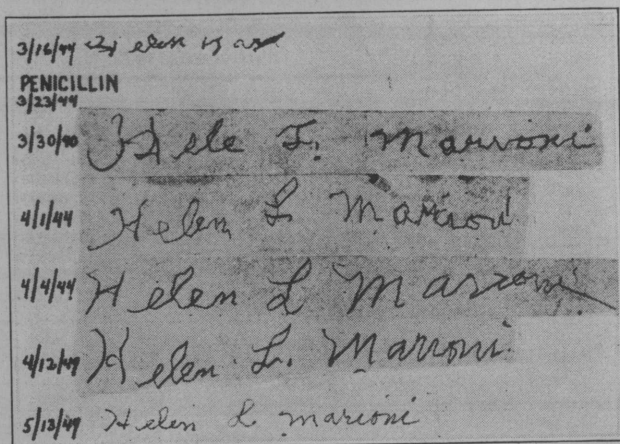 3/16/44 Helen Mar
PENICILLIN
3/23/44
3/30/40 Hele L. Marioni
4/1/44 Helen L Marioni
4/4/44 Helen L Marioni
4/12/44 Helen L. Marioni
5/13/44 Helen L marioni